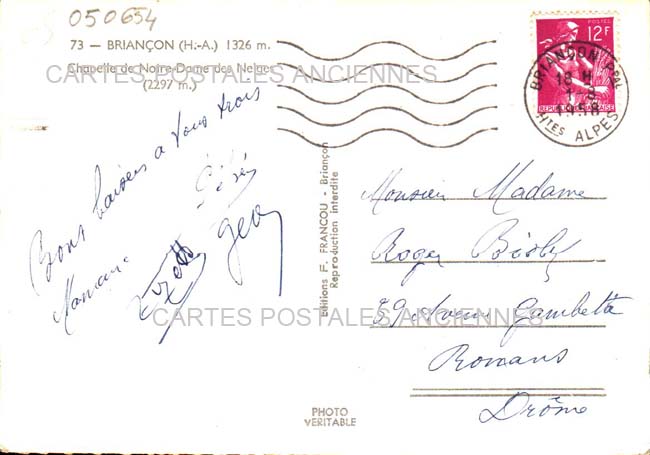 050654
73 — BRIANÇON (H.-A.) 1326 m.
Chapelle de Notre-Dame des Neiges
(2297 m.)
CARTES POSTALES ANCIENNES
POSTES
12F
REPUBLIQUE FRANÇAISE
BRIANÇON Ppal
18 H
1958
Htes ALPES
Bons baisers a vous trois
Maman
Geo
Editions F. FRANCOU - Briançon
Reproduction interdite
Monsieur Madame
Roger
39 Avenue Gambetta
Romans
Drôme
CARTES POSTALES ANCIENNES
PHOTO
VERITABLE